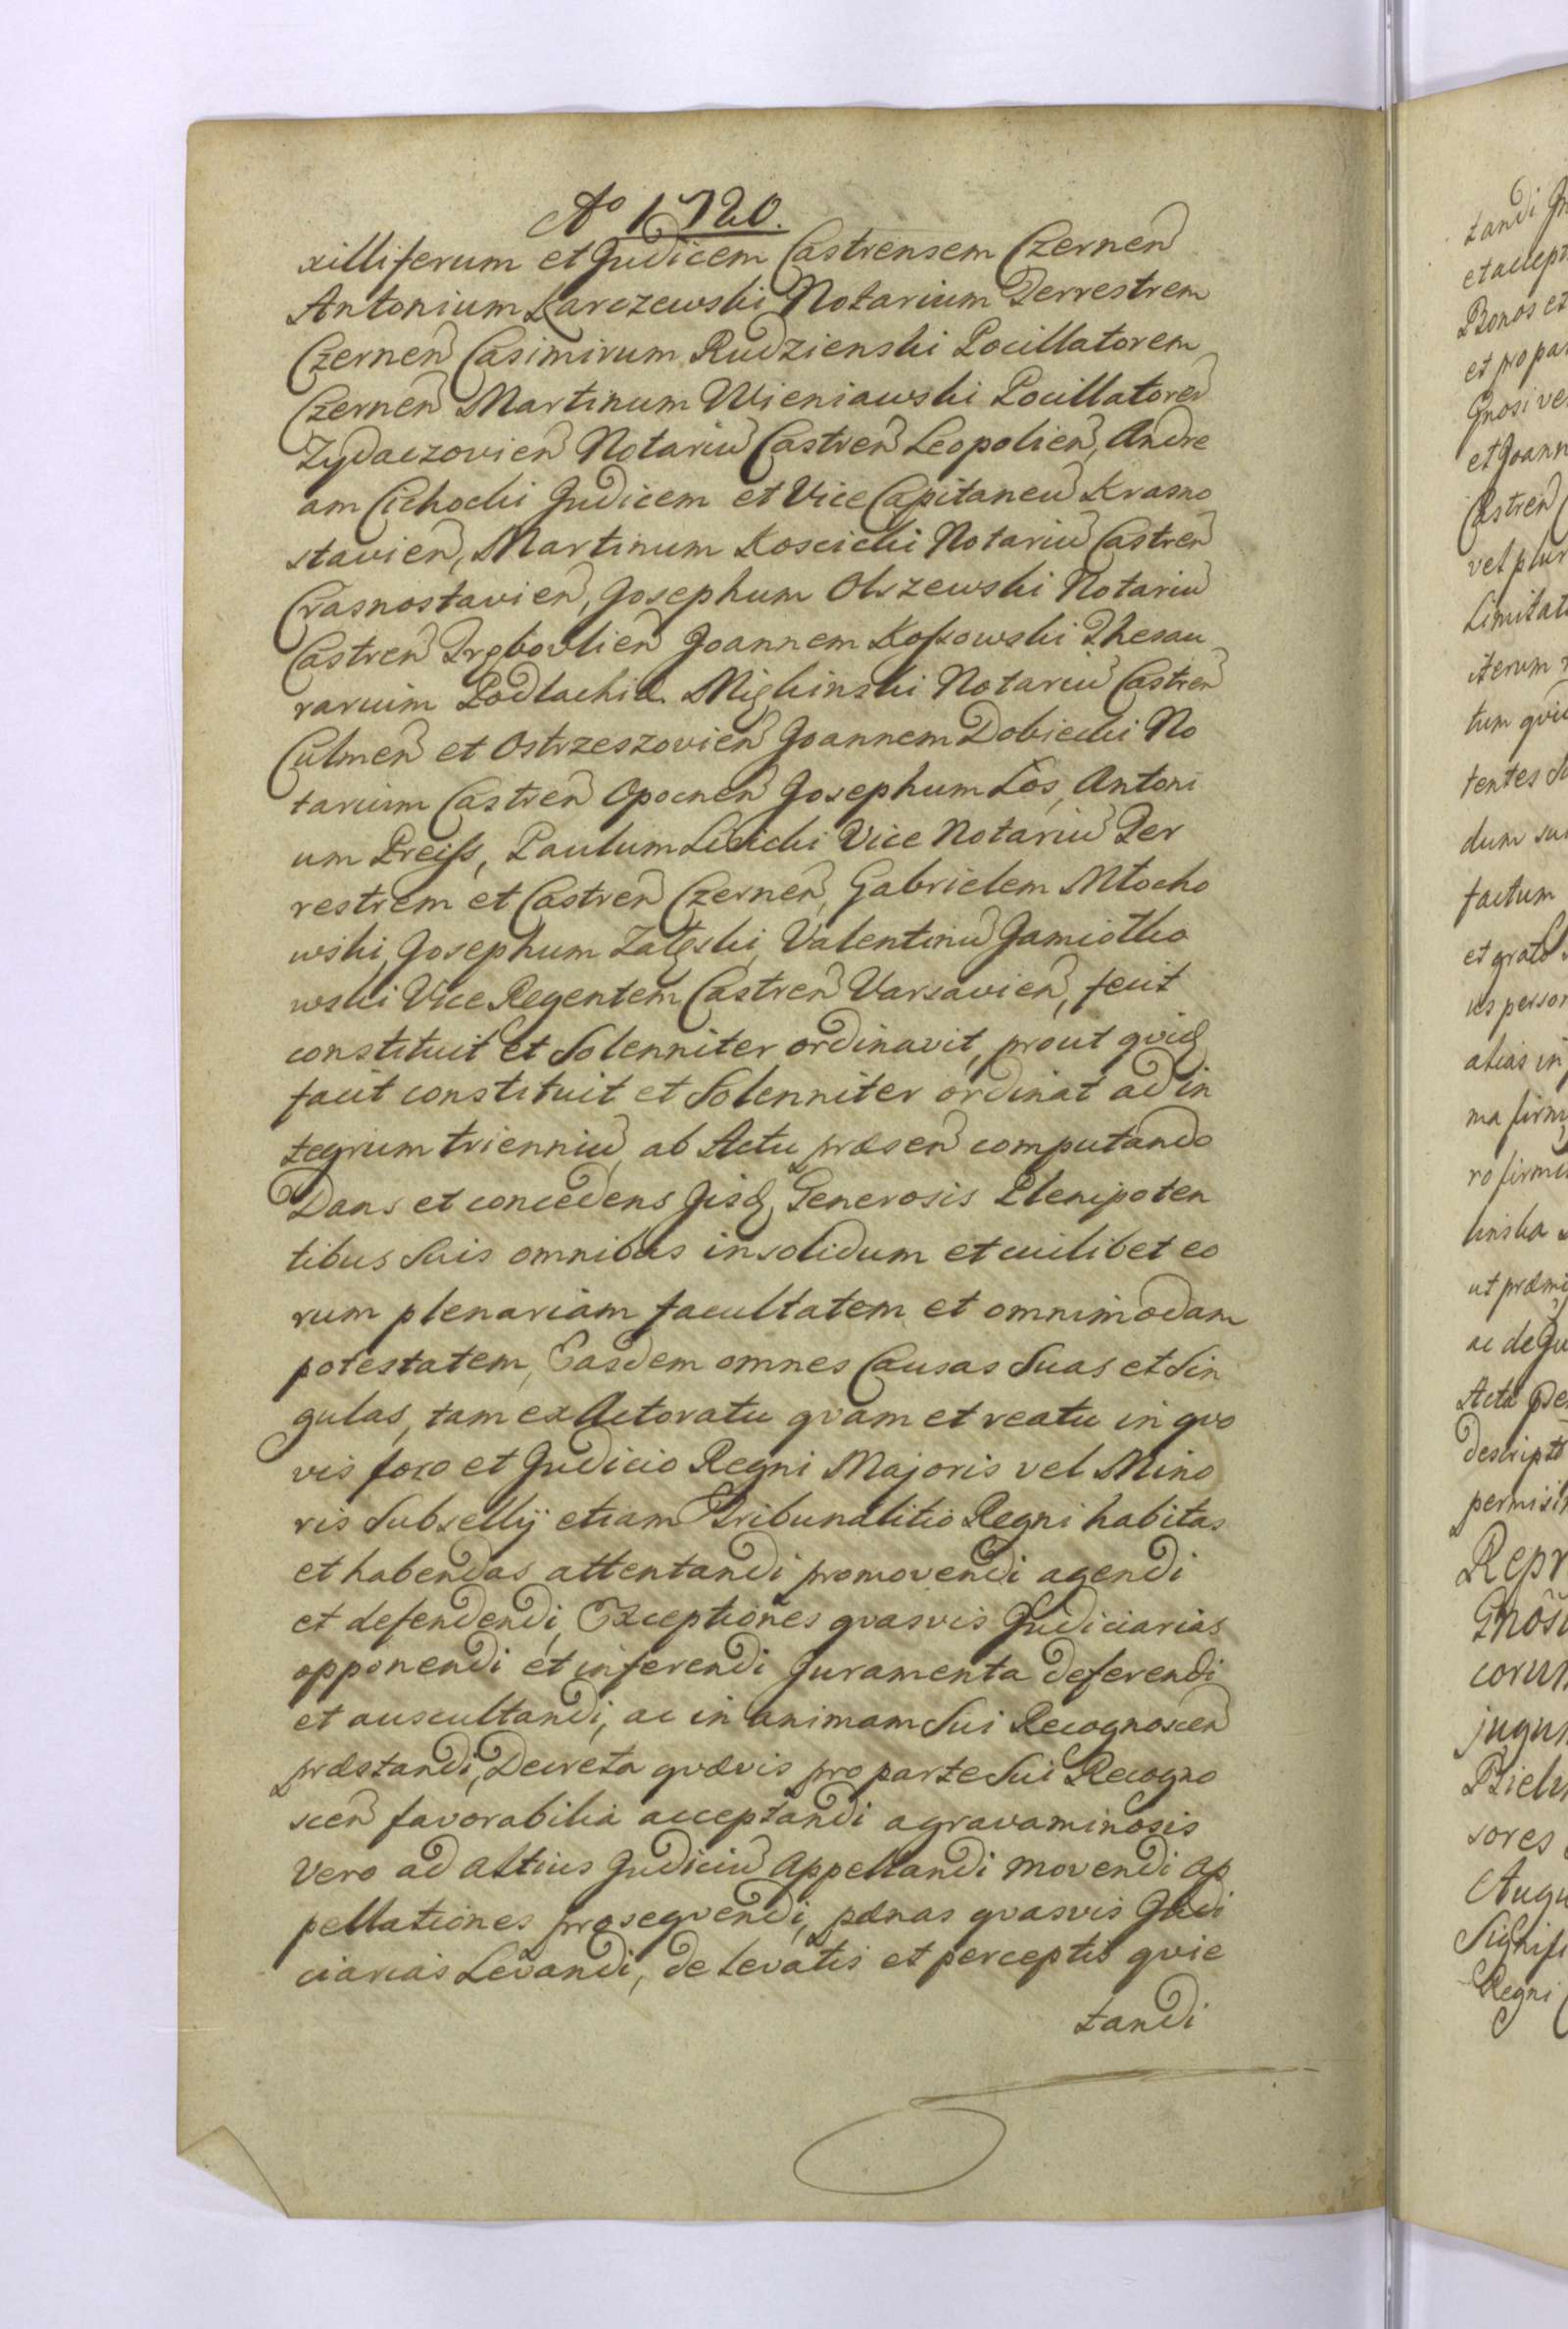 Ao 1720.
xilliferum et Judicem Castrensem Czernen
Antonium Karczewski Notarium Terrestrem
Czernen Casimirum Rudzienski Pocillatorem
Czernen Martinum Wieniawski Pocillatoren
Zydaczovien Notariu Castren Leopolien, Andre
am Cichocki Judicem et Vice Capitaneu Krasno
stavien, Martinum Koscicki Notariu Castren
Crasnostavien, Josephum Olszewski Notariu
Castren Trębovlien Joannem Kossowski Thesau
rarium Podlachiæ Miglinski Notariu Castren
Culmen et Ostrzeszovien Joannem Dobiecki No
tarium Castren Opocnen Josephum Łos, Antoni
um Preiss, Paulum Lisicki Vice Notariu Ter
restrem et Castren Czernen, Gabrielem Młocho
wski, Josephum Załęski, Valentinu Jamiołko
wski Vice Regentem Castren Varsavien, fecit
constituit et Solenniter ordinavit, prout quidę
facit constituit et Solenniter ordinat ad in
tegrum trienniu, ab Actu præsen computando
Dans et concedens Jisdę Generosis Plenipoten
tibus Suis omnibus insolidum et cuilibet eo
rum plenariam facultatem et omnimodam
potestatem, Easdem omnes Causas Suas et Sin
gulas, tam ex Actoratu qvam et reatu in qvo
vis foro et Judicio Regni Majoris vel Mino
ris Subsellij etiam Tribunalitio Regni habitas
et habendas attentandi promovendi agendi
et defendendi, Exceptiones qvasvis Judiciarias
opponendi et inferendi Juramenta deferendi
et auscultandi, ac in animam Sui Recognoscen
præstandi, Decreta qvævis pro parte Sui Recogno
scen favorabilia acceptandi agravaminosis
Vero ad altius Judiciu Appellandi movendi Ap
pellationes proseqvendi, pænas qvasvis Judi
ciarias Levandi, de levatis et perceptis qvie
tandi
tandi
Bonos et
et Joann
Castren
tum
tentes
dum
factum
et
alias in
Acta
Regni